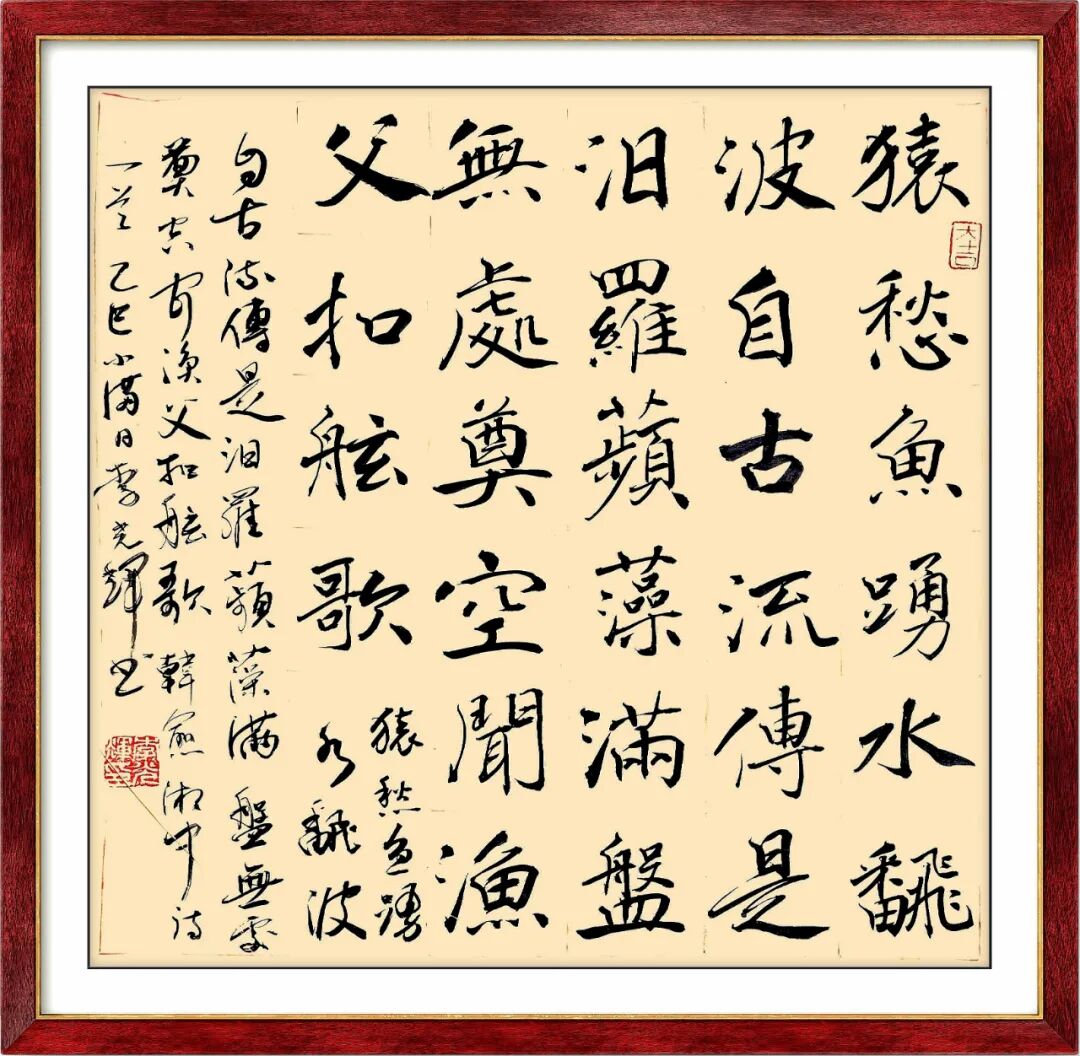 猿愁魚踴水飜
大吉
波自古流傳是
汨羅蘋藻滿盤
無處奠空聞漁
父扣舷歌
猿愁魚踴
水飜波
自古流傳是汨羅蘋藻滿盤無處
奠空聞漁父扣舷歌韓愈湘中詩
一首乙巳小滿日李光輝書
李光輝印